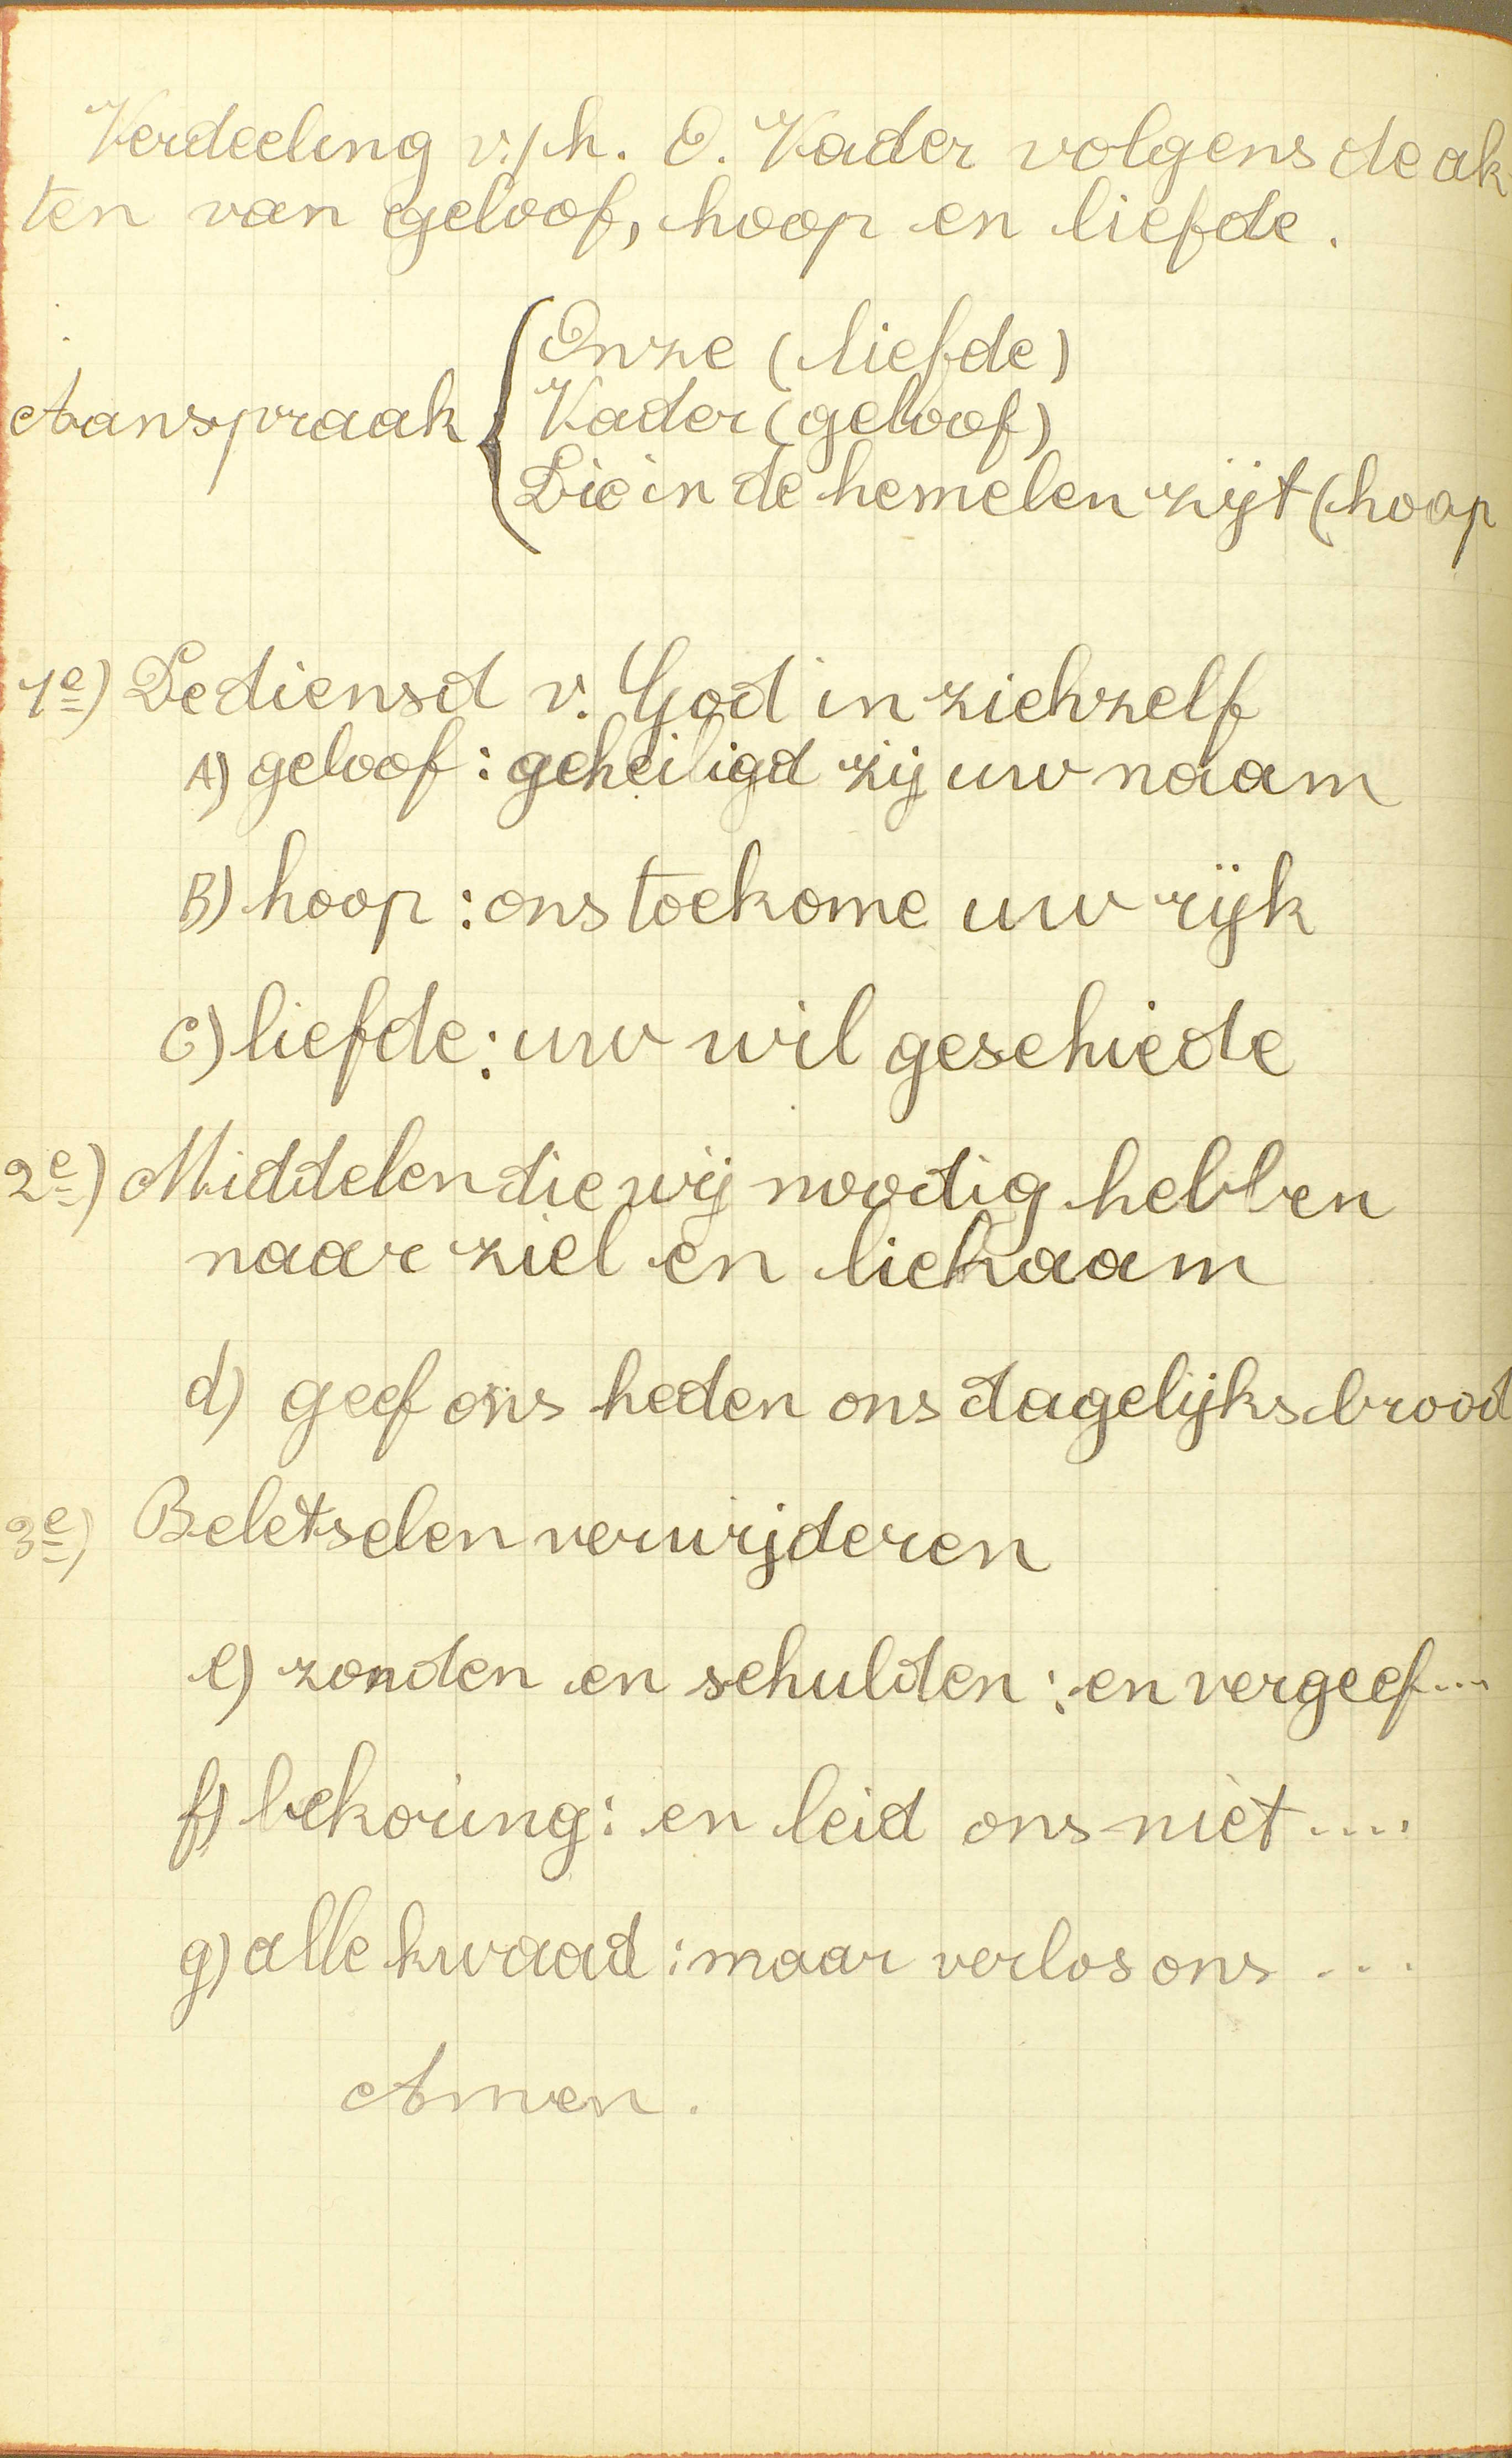 Verdeeling v/h. O. Vader volgens de ak
ten van geloof, hoop en liefde.
Onze (liefde)
Aanspraak { Vader (geloof)
Die in de hemelen zijt (hoop
1e) De diensd v. God in zichzelf
A) geloof : geheiligd zij uw naam
B) hoop : ons toekome uw rijk
C) liefde : uw wil geschiede
2e) Middelen die wij noodig hebben
naar ziel en lichaam
d) geef ons heden ons dagelijks brood
3e) Beletselen verwijderen
e) zonden en schulden : en vergeef...
f) bekoring : en leid ons niet ....
g) alle kwaad : maar verlos ons ...
Amen.